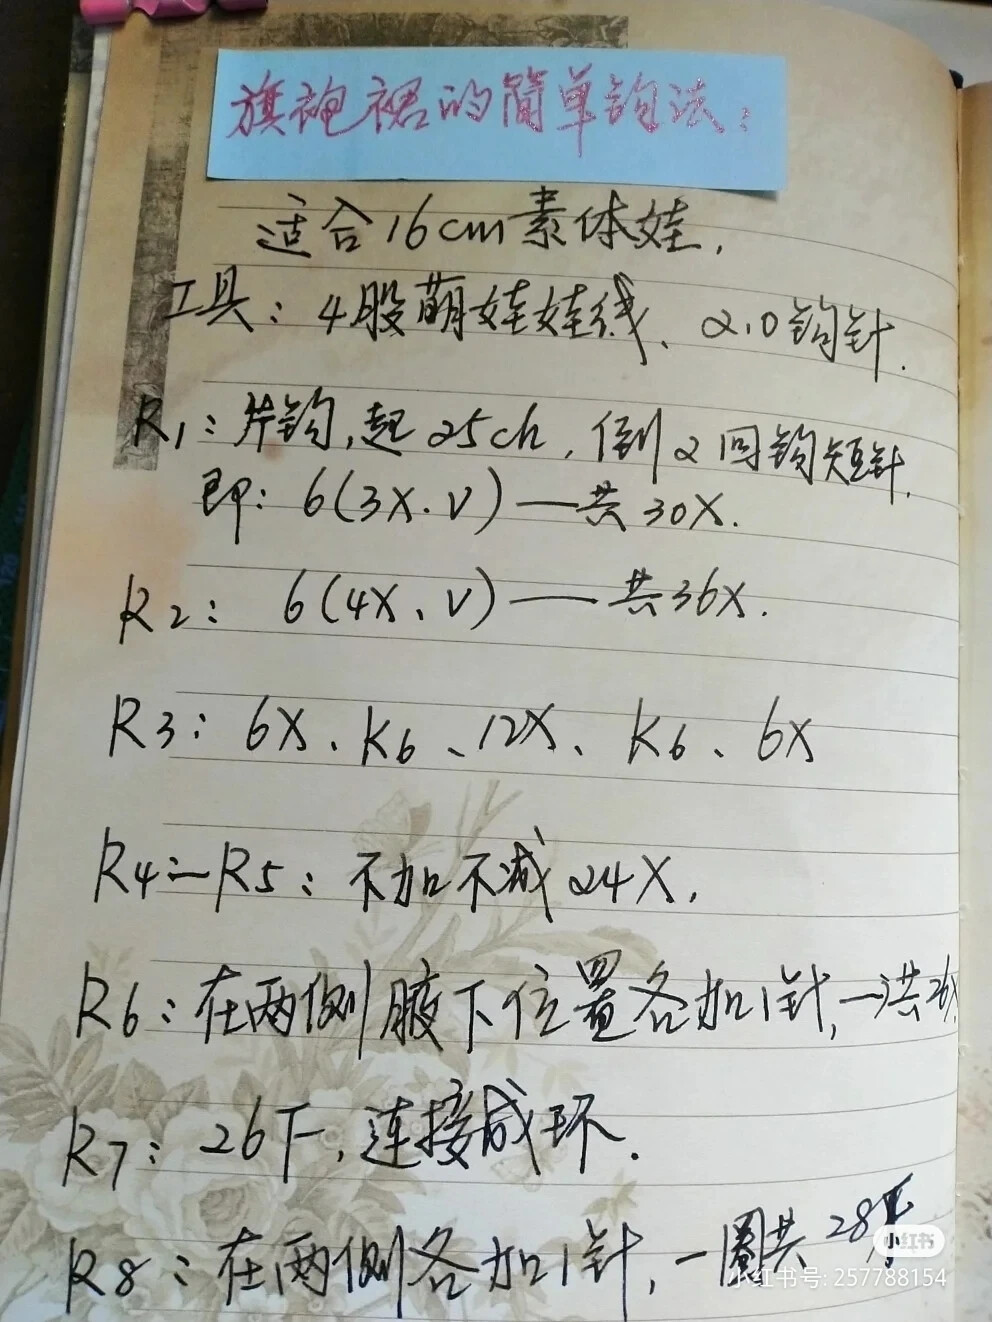 旗袍裙的简单钩法：
适合16cm素体娃,
工具：4股萌娃娃线、2.0钩针.
R1：片钩,起25ch,倒2回钩短针.
即：6(3X.V)—共30X.
R2： 6(4X、V)—共36X.
R3：6X、K6、12X、K6、6X
R4—R5：不加不减24X,
R6：在两侧腋下位置各加1针,一共26X.
R7：26下,连接成环.
R8：在两侧各加1针,一圈共28
小红书
小红书号: 257788154